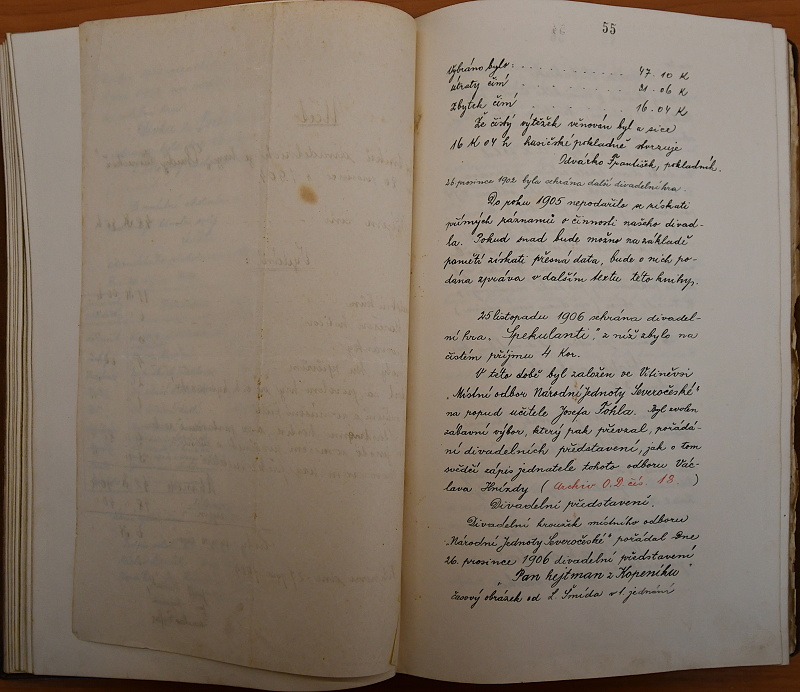 55
Vybráno bylo: . . . . . . . . . . . 47·10 K
útraty činí . . . . . . . . 31·06 K
zbytek činí . . . . . . . . 16·04 K
Že čistý výtěžek věnován byl a sice
16 K 04 h hasičské pokladně stvrzuje
Odvárko František, pokladník.
26. prosince 1902 byla sehrána další divadelní hra.
Do roku 1905 nepodařilo se získati
přímých záznamů o činnosti našeho divad-
la. Pokud snad bude možno na základě
paměti získati přesná data, bude o nich po-
dána zpráva v dalším textu této knihy.
25 listopadu 1906 sehrána divadel-
ní hra „Spekulanti", z níž zbylo na
čistém příjmu 4 Kor.
V této době byl založen ve Vtiněvsi
„Místní odbor Národní Jednoty Severočeské"
na popud učitele Josefa Pohla. Byl zvolen
zábavní výbor, který pak převzal pořádá-
ní divadelních představení, jak o tom
svědčí zápis jednatele tohoto odboru Vác-
lava Hnízdy (Archiv O.D. čís. 18.)
Divadelní představení.
Divadelní kroužek místního odboru
„Národní Jednoty Severočeské" pořádal dne
26. prosince 1906 divadelní představení
„Pan hejtman z Kopeníku"
časový obrázek od L. Šmída v 1. jednání